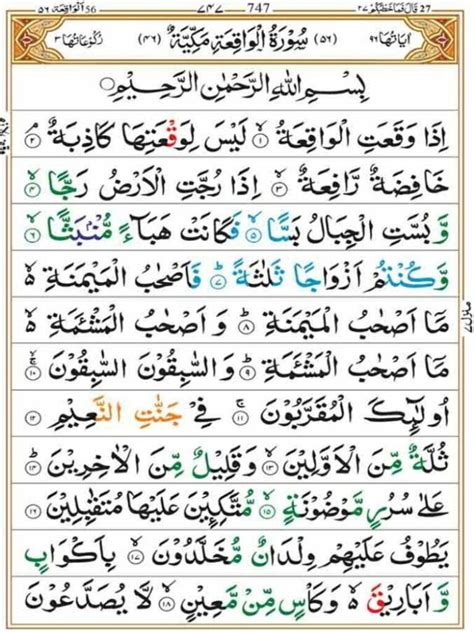 56 الواقعة ٥٦ ٧٤٧ 747 27 قال فما خطبكم ٢٧
اٰیَاتُهَا ٩٦ (٥٦) سُوْرَةُ الْوَاقِعَةِ مَكِّيَّةٌ (٤٦) رُكُوْعَاتُهَا ٣
بِسْمِ اللّٰهِ الرَّحْمٰنِ الرَّحِيْمِ
اِذَا وَقَعَتِ الْوَاقِعَةُ ۙ﴿١﴾ لَيْسَ لِوَقْعَتِهَا كَاذِبَةٌ ۘ﴿٢﴾
خَافِضَةٌ رَّافِعَةٌ ۙ﴿٣﴾ اِذَا رُجَّتِ الْاَرْضُ رَجًّا ۙ﴿٤﴾
وَّ بُسَّتِ الْجِبَالُ بَسًّا ۙ﴿٥﴾ فَكَانَتْ هَبَآءً مُّنْۢبَثًّا ۙ﴿٦﴾
وَّ كُنْتُمْ اَزْوَاجًا ثَلٰثَةً ؕ﴿٧﴾ فَاَصْحٰبُ الْمَيْمَنَةِ ۙ۬
مَاۤ اَصْحٰبُ الْمَيْمَنَةِ ؕ﴿٨﴾ وَ اَصْحٰبُ الْمَشْـَٔمَةِ ۙ۬
مَاۤ اَصْحٰبُ الْمَشْـَٔمَةِ ؕ﴿٩﴾ وَ السّٰبِقُوْنَ السّٰبِقُوْنَ ۚۙ﴿١٠﴾
اُولٰٓئِكَ الْمُقَرَّبُوْنَ ۚ﴿١١﴾ فِيْ جَنّٰتِ النَّعِيْمِ ﴿١٢﴾
ثُلَّةٌ مِّنَ الْاَوَّلِيْنَ ۙ﴿١٣﴾ وَ قَلِيْلٌ مِّنَ الْاٰخِرِيْنَ ؕ﴿١٤﴾
عَلٰى سُرُرٍ مَّوْضُوْنَةٍ ۙ﴿١٥﴾ مُّتَّكِـِٕيْنَ عَلَيْهَا مُتَقٰبِلِيْنَ ﴿١٦﴾
يَطُوْفُ عَلَيْهِمْ وِلْدَانٌ مُّخَلَّدُوْنَ ۙ﴿١٧﴾ بِاَكْوَابٍ
وَّ اَبَارِيْقَ ۙ۬ وَ كَاْسٍ مِّنْ مَّعِيْنٍ ۙ﴿١٨﴾ لَّا يُصَدَّعُوْنَ